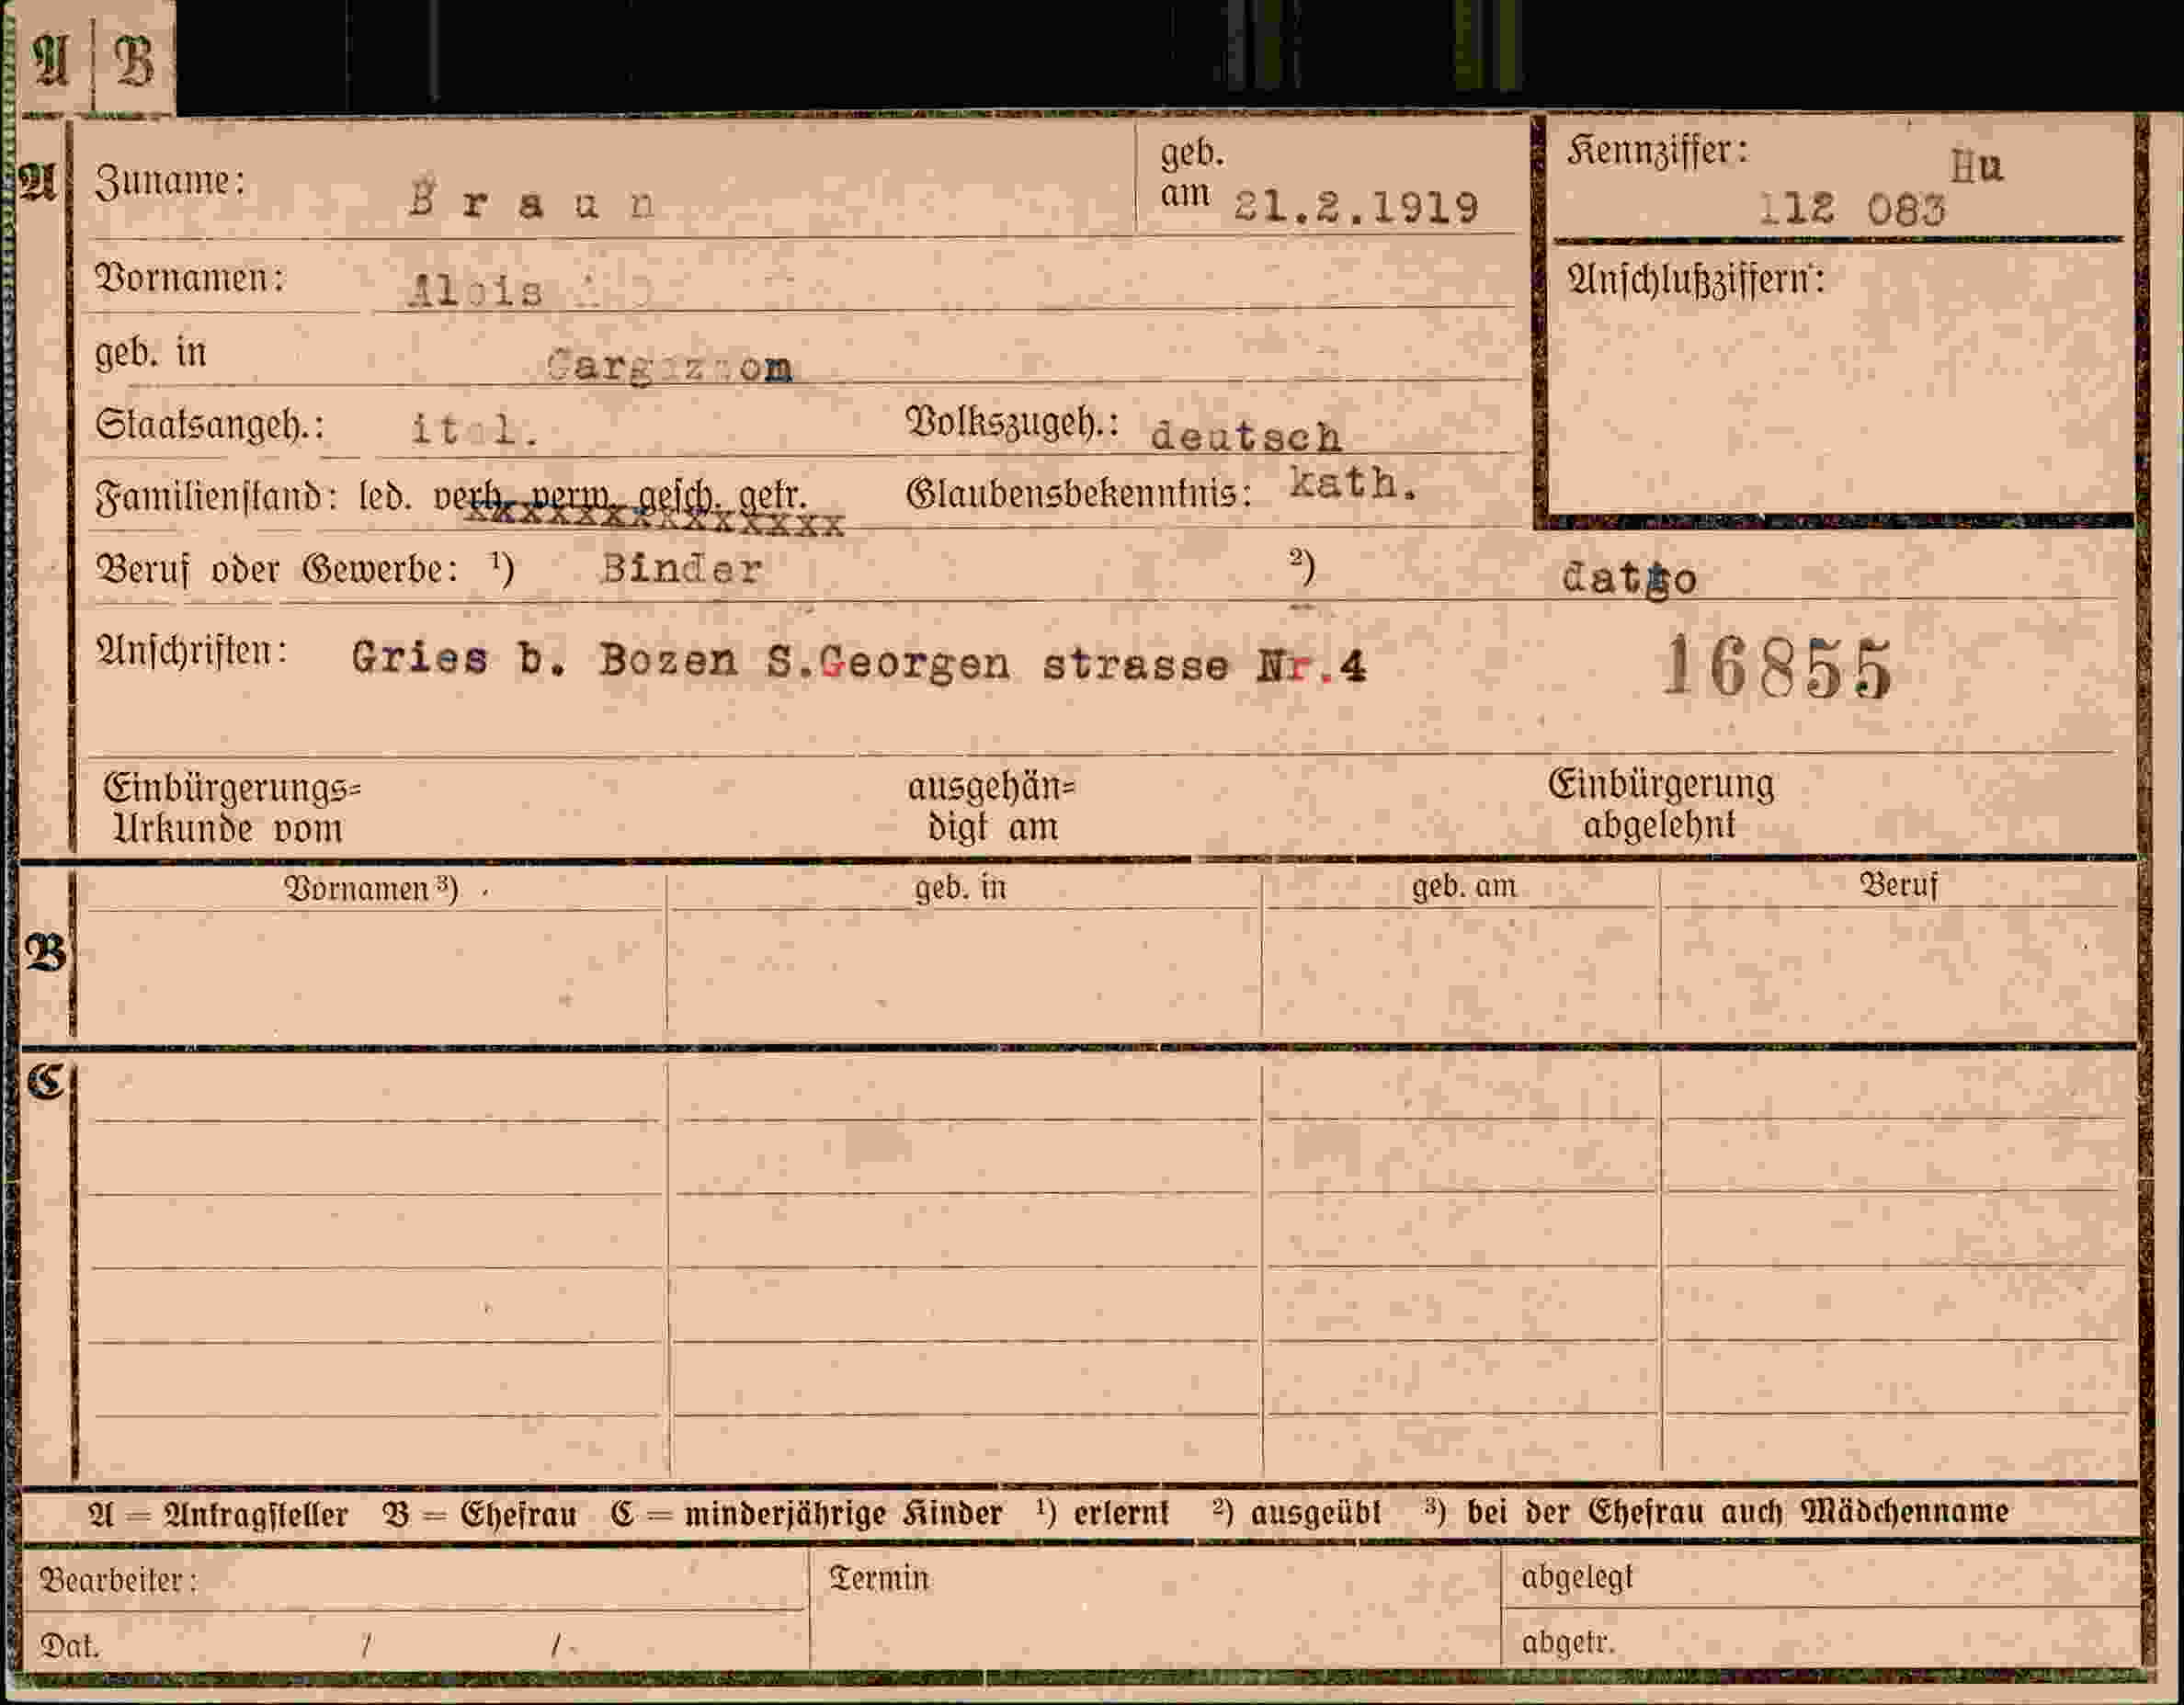 A B
A
Zuname: Braun
geb. am 21.2.1919
Kennziffer: Hu 112 083
Vornamen: Alois
Anschlußziffern:
geb. in
Staatsangeh.: ital. Volkszugeh.: deutsch
Familienstand: led. verh. verw. gesch. getr. Glaubensbekenntnis: kath.
Beruf oder Gewerbe: ¹) Binder ²)
Anschriften: Gries b. Bozen S.Georgen strasse Nr.4 16855
Einbürgerungs= ausgehän= Einbürgerung
Urkunde vom digt am abgelehnt
Vornamen ³) geb. in geb. am Beruf
B
C
A = Antragsteller B = Ehefrau C = minderjährige Kinder ¹) erlernt ²) ausgeübt ³) bei der Ehefrau auch Mädchenname
Bearbeiter: Termin abgelegt
Dat. / / abgetr.